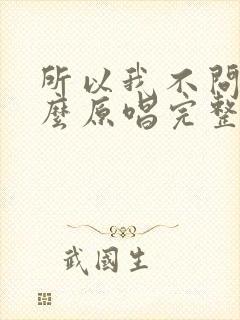 所以我不問
麼原唱完整
武國生